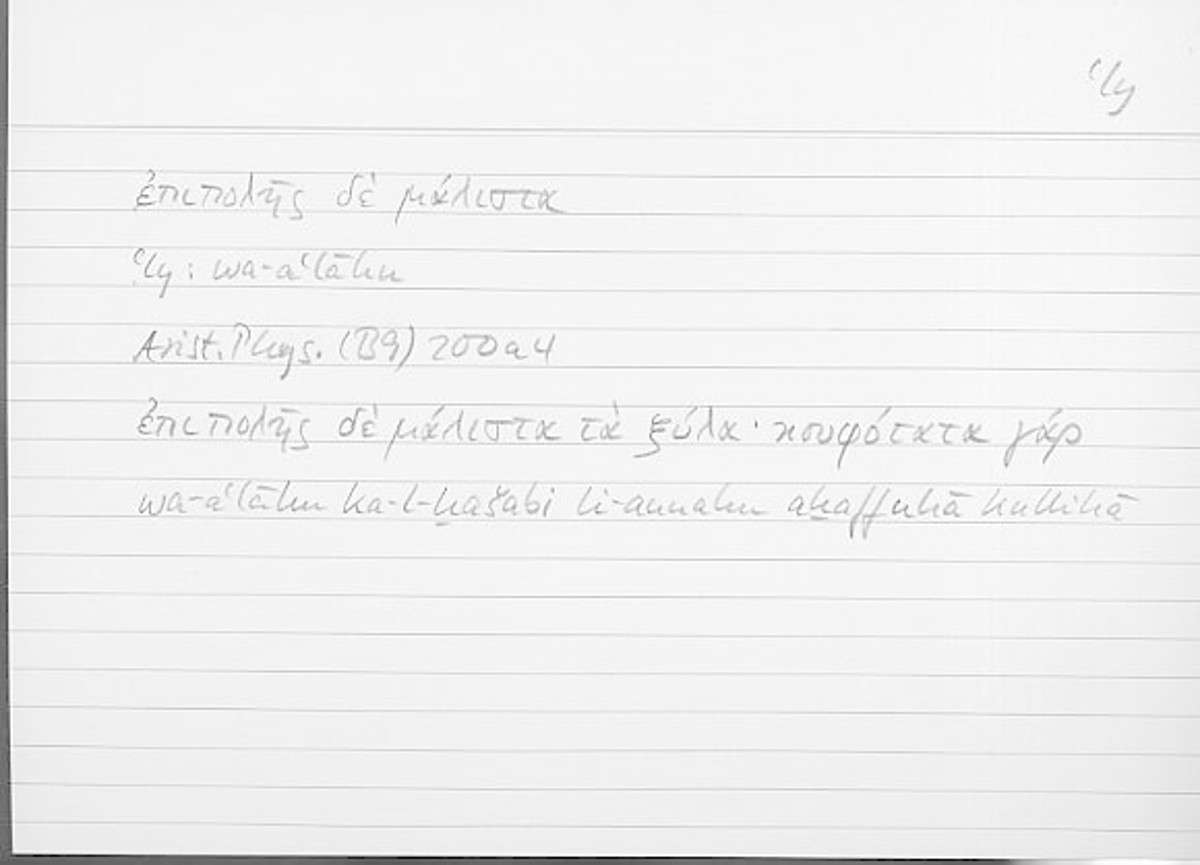 ʿly
ἐπιπολῆς δὲ μάλιστα
ʿly : wa-aʿlāhu
Arist. Phys. (B9) 200a4
ἐπιπολῆς δὲ μάλιστα τὰ ξύλα· κουφότατα γάρ
wa-aʿlāhu ka-l-ḫašabi li-annahu aḫaffuhā kullihā